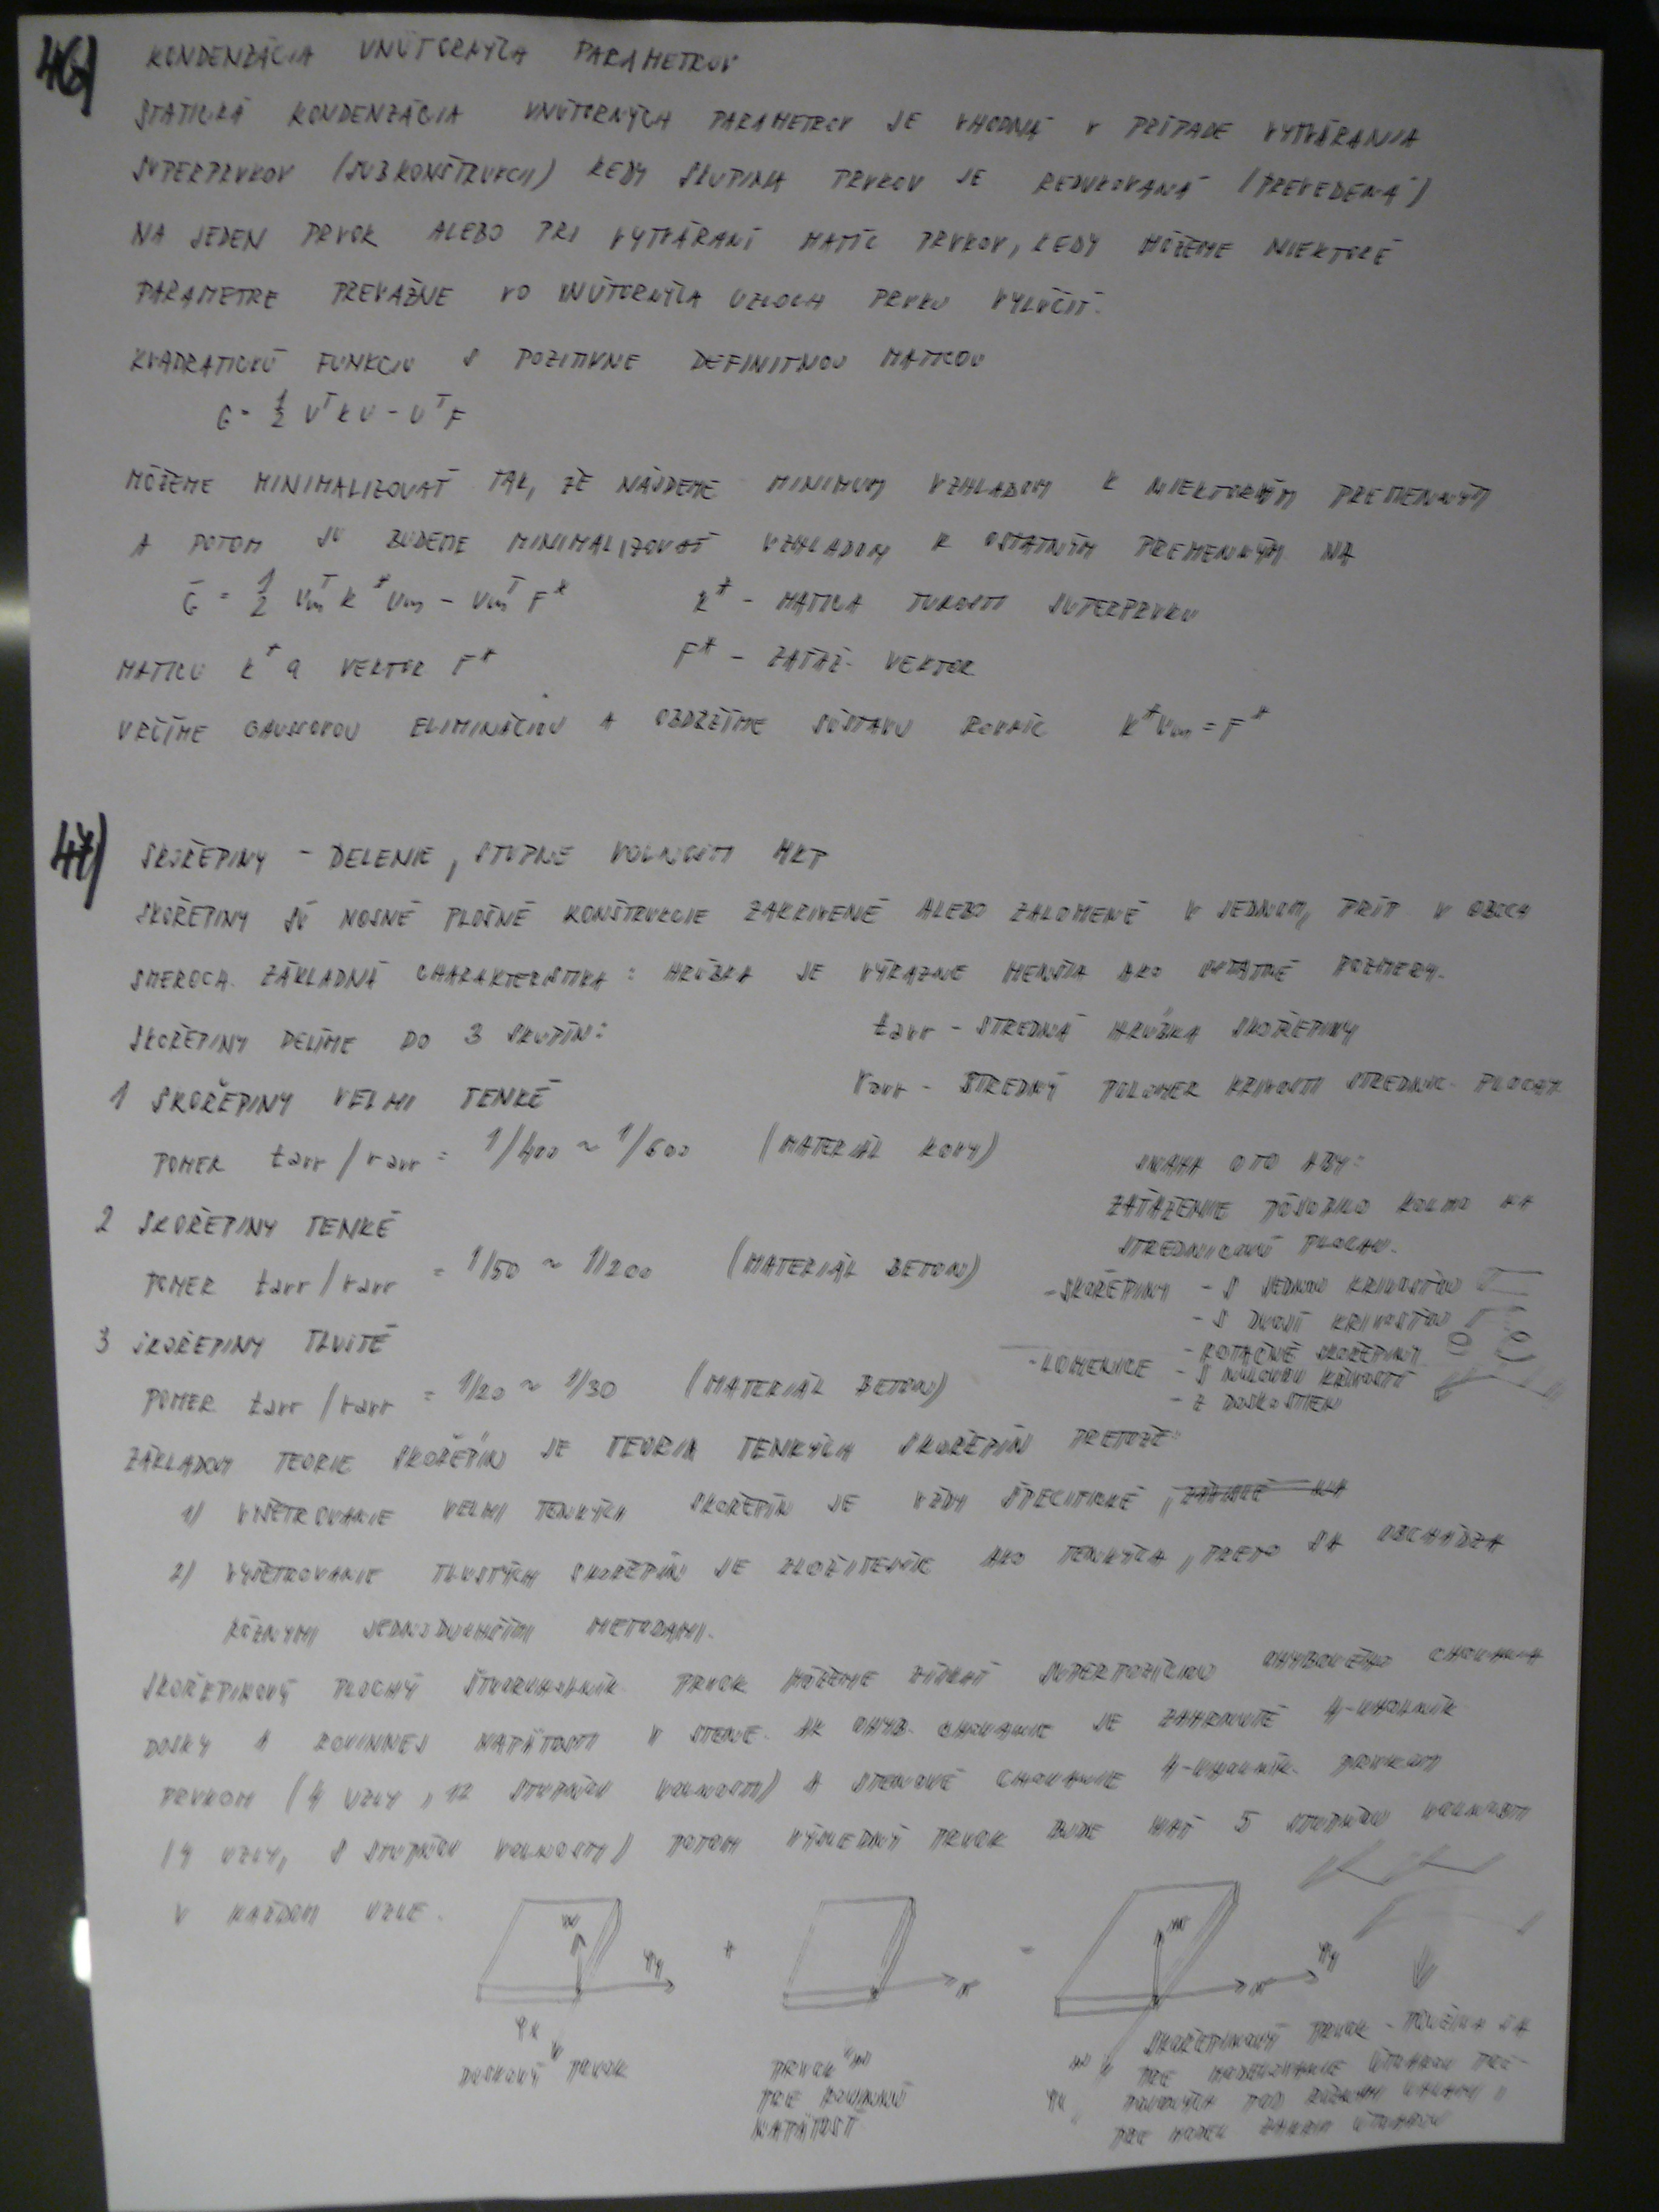 46) KONDENZÁCIA VNÚTORNÝCH PARAMETROV
STATICKÁ KONDENZÁCIA VNÚTORNÝCH PARAMETROV JE VHODNÁ V PRÍPADE VYTVÁRANIA
SUPERPRVKOV (SUBKONŠTRUKCII) KEDY SKUPINA PRVKOV JE REDUKOVANÁ (PREVEDENÁ)
NA JEDEN PRVOK ALEBO PRI VYTVÁRANÍ MATÍC PRVKOV, KEDY MÔŽEME NIEKTORÉ
PARAMETRE PREVAŽNE VO VNÚTORNÝCH UZLOCH PRVKU VYLÚČIŤ.
KVADRATICKÚ FUNKCIU S POZITIVNE DEFINITNOU MATICOU
G = 1/2 U^T K U - U^T F
MÔŽEME MINIMALIZOVAŤ TAK, ŽE NÁJDEME MINIMUM VZHLADOM K NIEKTORÝM PREMENNÝM
A POTOM JU BUDEME MINIMALIZOVAŤ VZHLADOM K OSTATNÝM PREMENNÝM NA
G̅ = 1/2 U_m^T K* U_m - U_m^T F* K* - MATICA TUHOSTI SUPERPRVKU
MATICU K* a VEKTOR F* F* - ZAŤAŽ. VEKTOR
URČÍME GAUSSOVOU ELIMINÁCIOU A OBDRŽÍME SÚSTAVU ROVNÍC K* U_m = F*
47) SKOŘEPINY - DELENIE, STUPNE VOLNOSTI MKP
SKOŘEPINY SÚ NOSNÉ PLOŠNÉ KONŠTRUKCIE ZAKRIVENÉ ALEBO ZALOMENÉ V JEDNOM, PRÍP V OBOCH
SMEROCH. ZÁKLADNÁ CHARAKTERISTIKA: HRÚBKA JE VÝRAZNE MENŠIA AKO OSTATNÉ ROZMERY.
SKOŘEPINY DELÍME DO 3 SKUPÍN: tavr - STREDNÁ HRÚBKA SKOŘEPINY
1 SKOŘEPINY VELMI TENKÉ ravr - STREDNÝ POLOMER KRIVOSTI STREDNIC. PLOCHY
POMER tavr / ravr = 1/400 ~ 1/600 (MATERIÁL KOVY)
SNAHA O TO ABY:
ZAŤAŽENIE PÔSOBILO KOLMO NA
STREDNICOVÚ PLOCHU.
2 SKOŘEPINY TENKÉ
POMER tavr / ravr = 1/50 ~ 1/200 (MATERIÁL BETON)
- SKOŘEPINY - S JEDNOU KRIVOSTOU
- S DVOJÍ KRIVOSTOU
- ROTAČNÉ SKOŘEPINY
- LOMENICE - S NULOVOU KŘIVOSTÍ
- Z DOSKOSTIEN
3 SKOŘEPINY TLUSTÉ
POMER tavr / ravr = 1/20 ~ 1/30 (MATERIÁL BETON)
ZÁKLADOM TEORIE SKOŘEPÍN JE TEORIA TENKÝCH SKOŘEPÍN PRETOŽE:
1) VYŠETROVANIE VELMI TENKÝCH SKOŘEPÍN JE VŽDY ŠPECIFICKÉ,
2) VYŠETROVANIE TLUSTÝCH SKOŘEPÍN JE ZLOŽITEJŠIE AKO TENKÝCH, PRETO SA OBCHÁDZA
RÔZNYMI JEDNODUCHŠÍMI METODAMI.
SKOŘEPINOVÝ PLOCHÝ ŠTVORUHOLNÍK. PRVOK MÔŽEME ZÍSKAŤ SUPERPOZÍCIOU OHYBOVÉHO CHOVANIA
DOSKY A ROVINNEJ NAPÄTOSTI V STENE. AK OHYB. CHOVANIE JE ZAHRNUTÉ 4-UHOLNÍK.
PRVKOM (4 UZLY, 12 STUPŇOV VOLNOSTI) A STENOVÉ CHOVANIE 4-UHOLNÍK. PRVKOM
(4 UZLY, 8 STUPŇOV VOLNOSTI) POTOM VÝSLEDNÝ PRVOK BUDE MAŤ 5 STUPŇOV VOLNOSTI
V KAŽDOM UZLE.
w φy + v = w v φy
φx
DOSKOVÝ PRVOK
PRVOK u
PRE ROVINNÚ
NAPÄTOSŤ
u
φx
SKOŘEPINOVÝ PRVOK - POUŽÍVA SA
PRE MODELOVANIE ÚTVAROV
POD RÔZNYMI UHLAMI,
PRE MODEL ZAKRIV ÚTVAROV